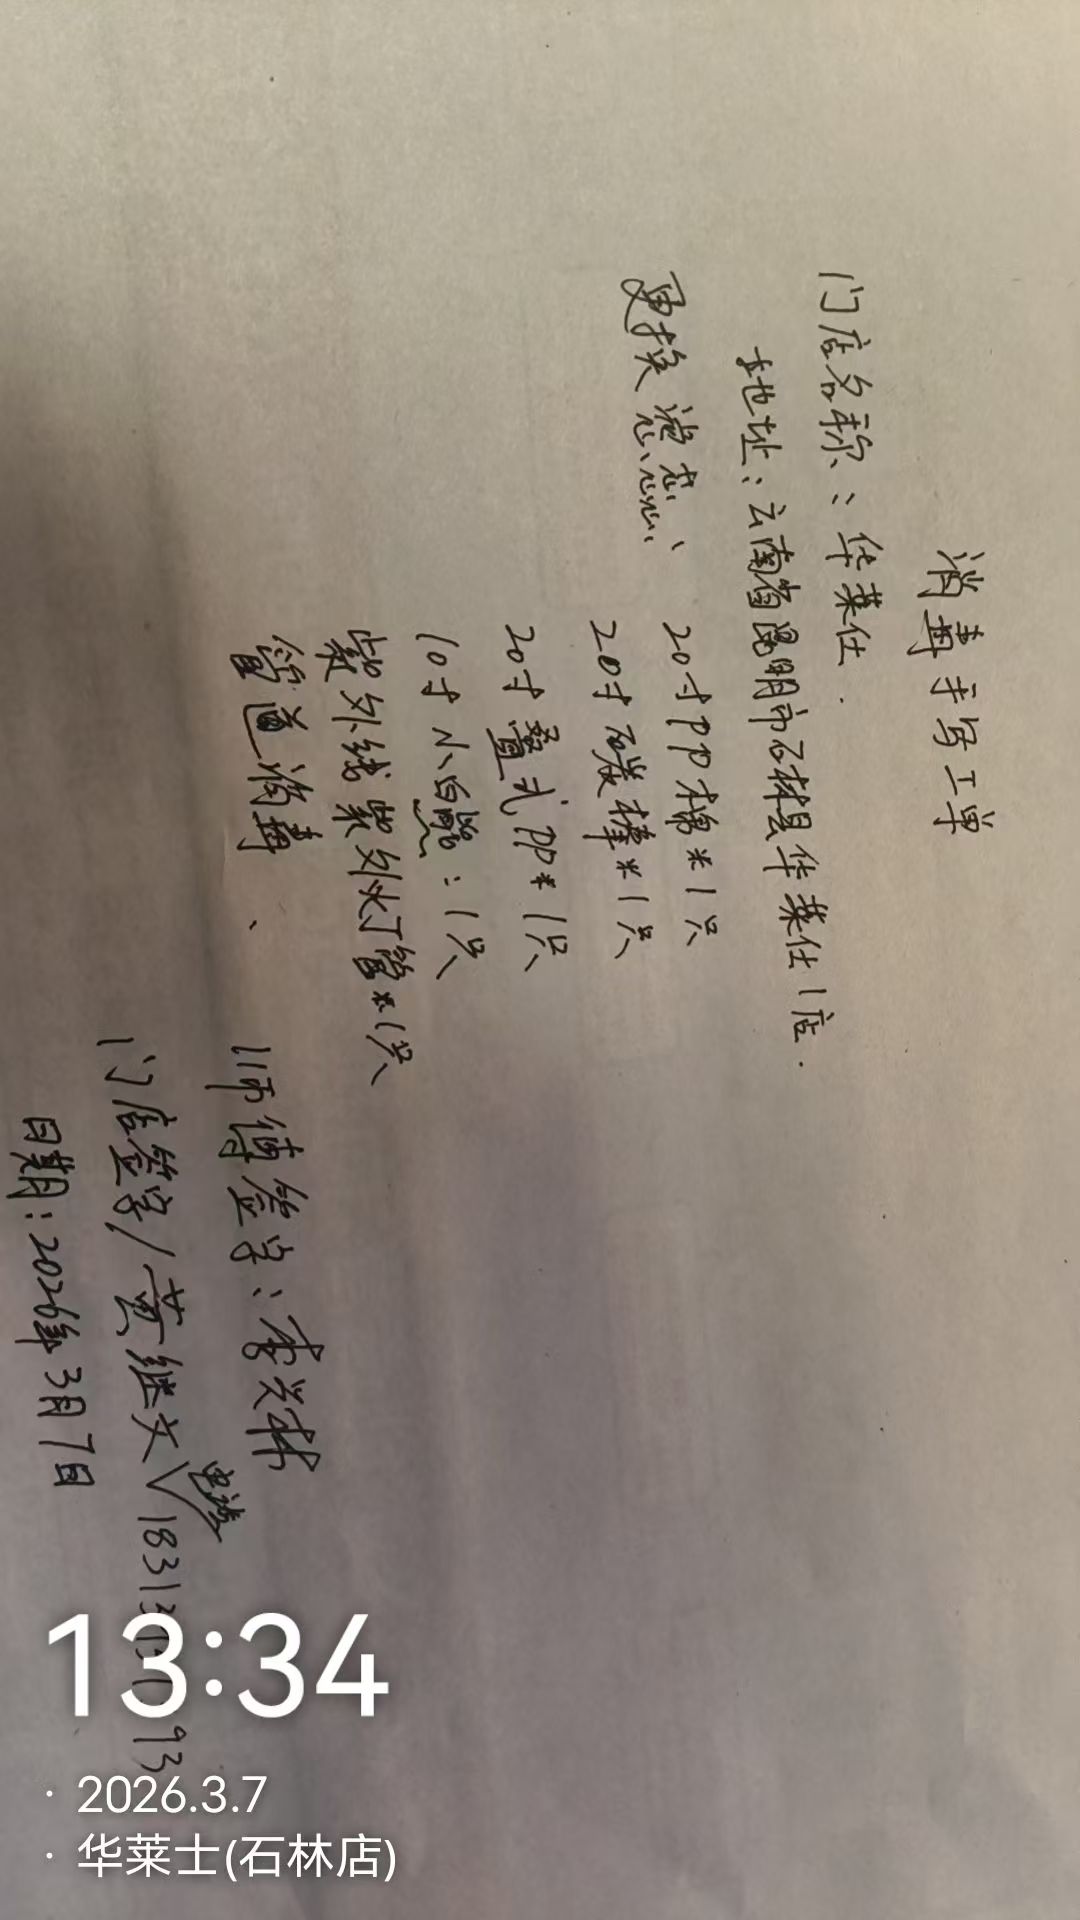 消毒手写工单
门店名称：华莱仕.
地址：云南省昆明市石林县华莱仕1店.
更换滤芯、
20寸PP棉*1只
20寸碳棒*1只
20寸叠式PP*1只
10寸小白瓶：1只
紫外线紫外灯管*1只
管道消毒、
师傅签字：李兴林
门店签字/黄继文 电话
日期：2026年3月7日
13:34
· 2026.3.7
· 华莱士(石林店)